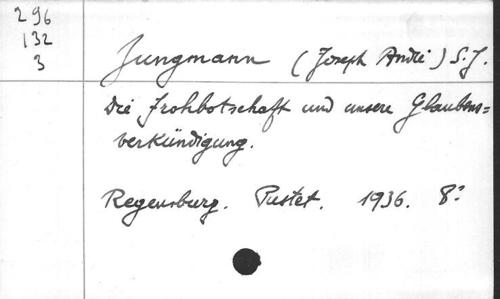 296
132
3
Jungmann (Joseph André) S.J.
Die Frohbotschaft und unsere Glaubens=
verkündigung.
Regensburg. Pustet. 1936. 8°